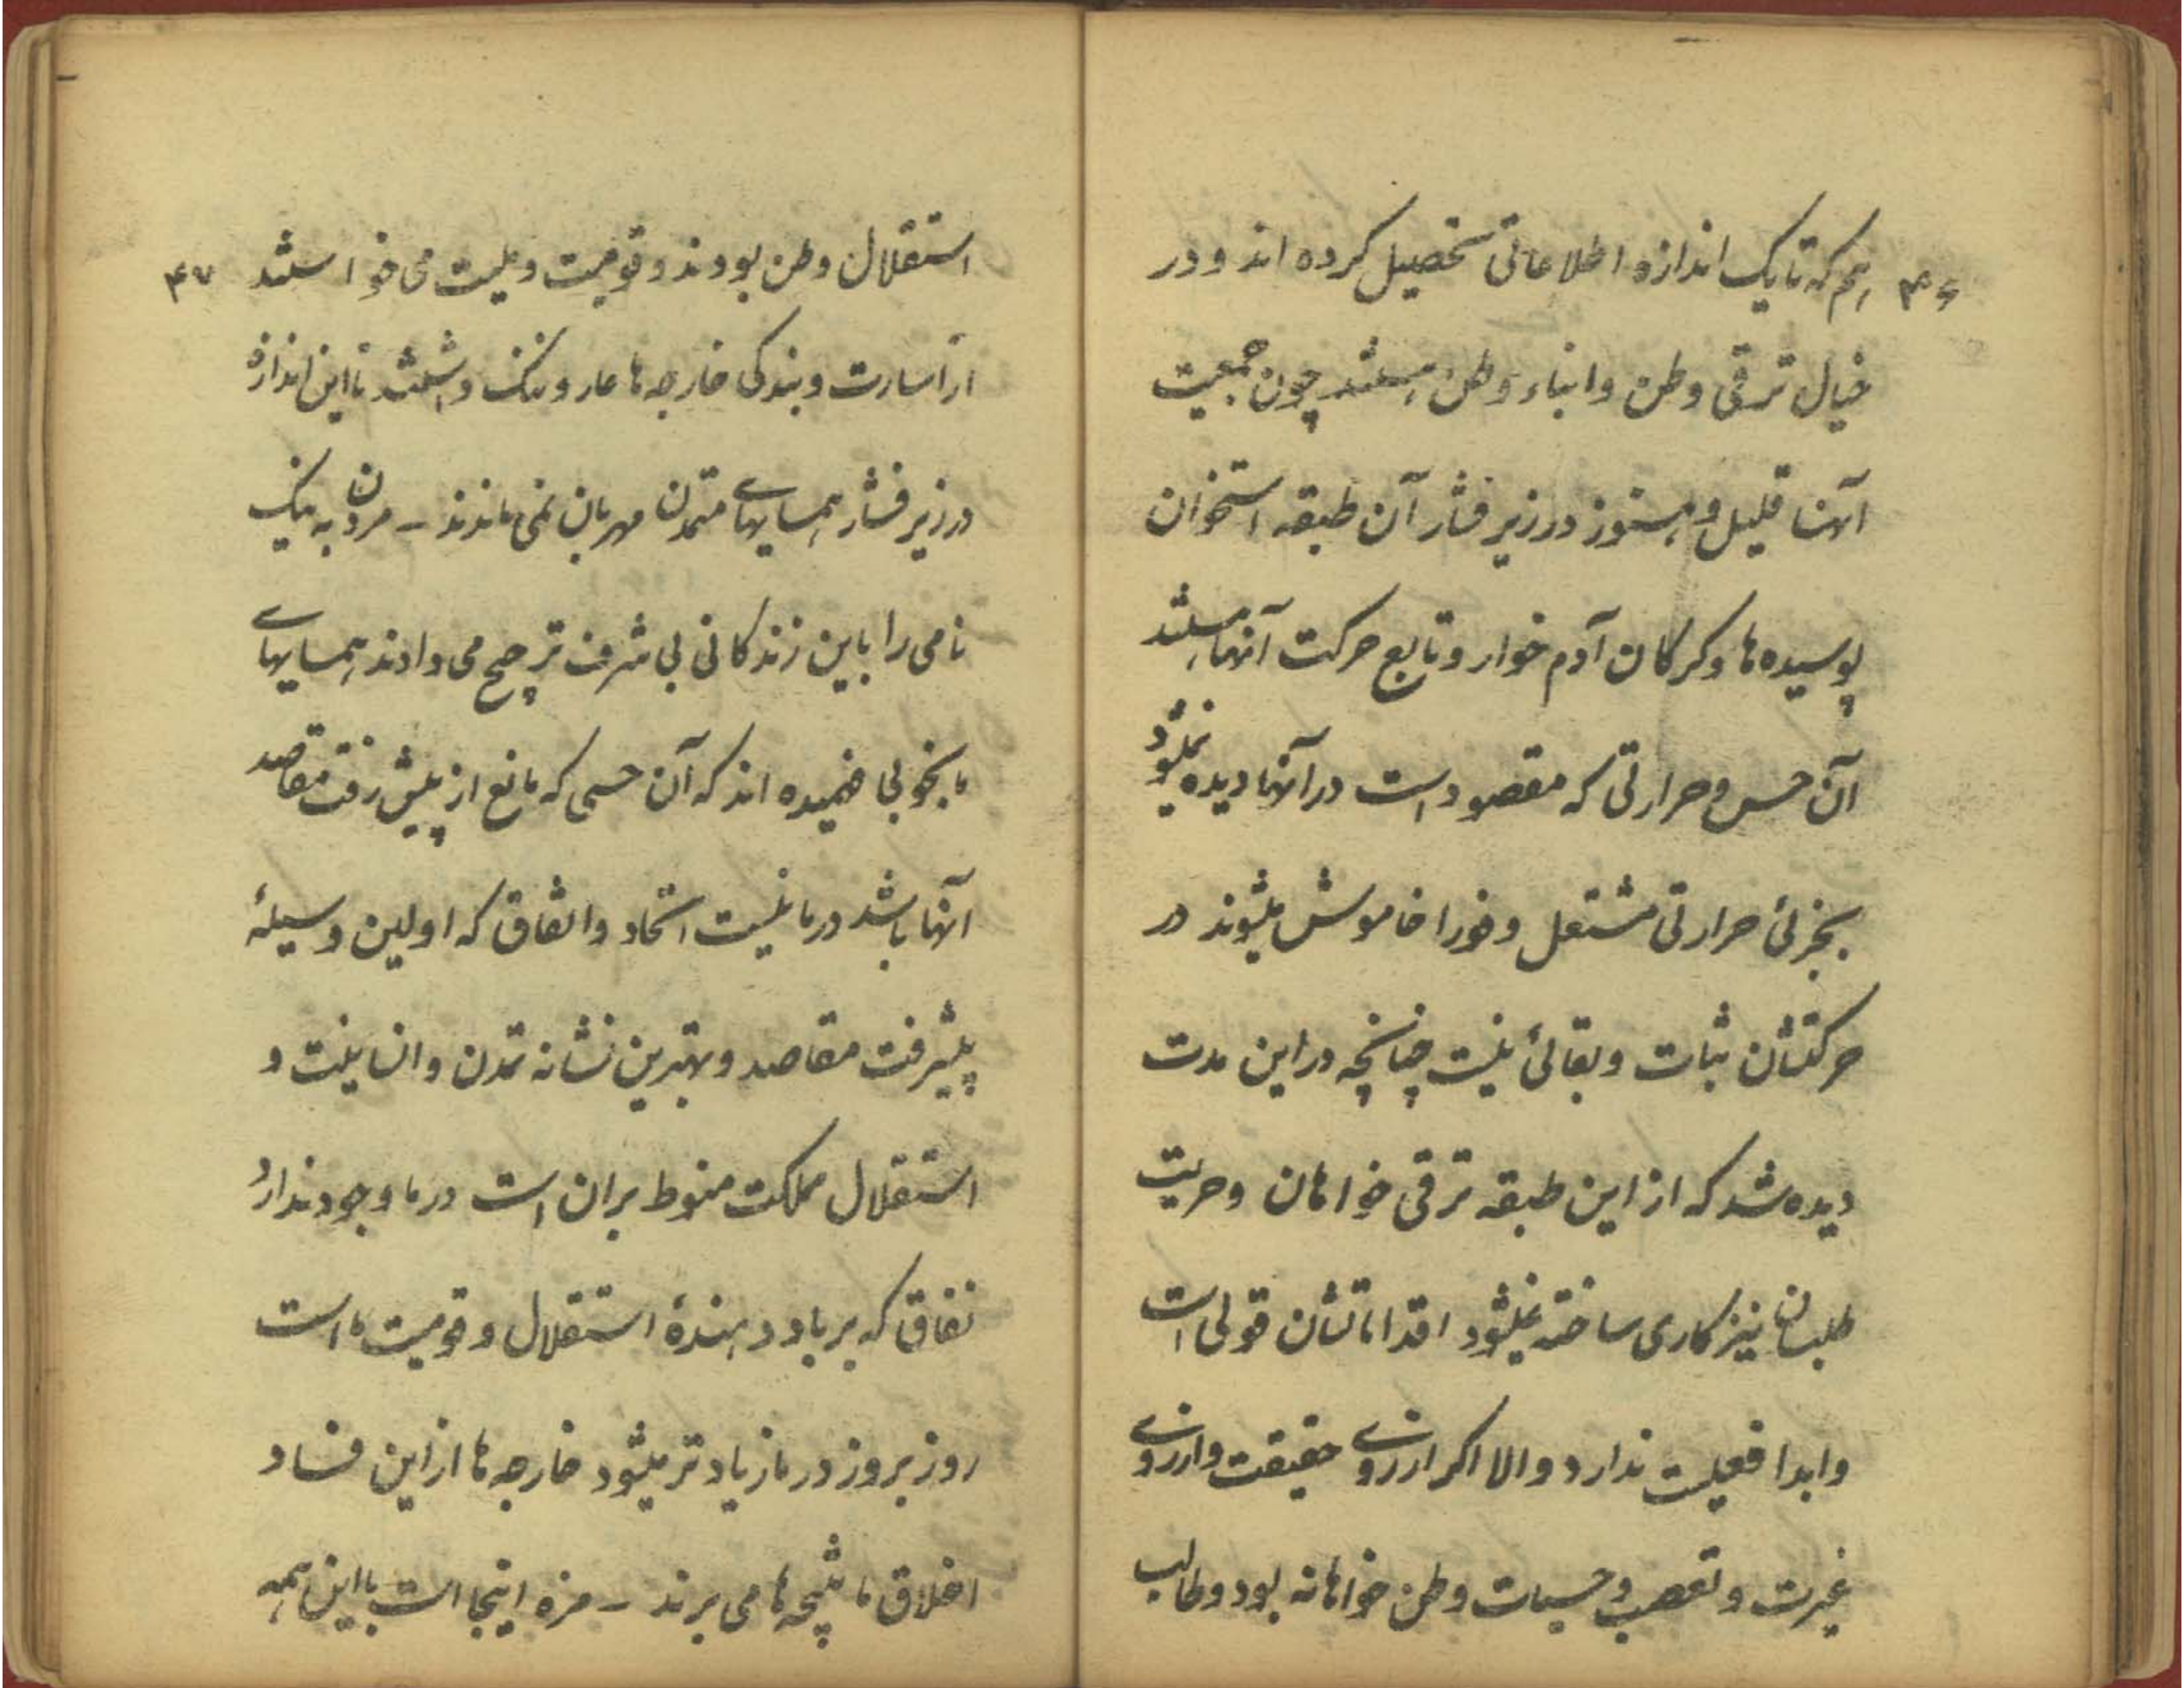 ۴۶
هم که تا یک اندازه اطلاعاتی تحصیل کرده اند و در
خیال ترقی وطن و ابناء وطن هستند چون جمعیت
آنها قلیل و هنوز در زیر فشار آن طبقه استخوان
پوسیده ها و کرکان آدم خوار و تابع حرکت آنها هستند
آن حس و حرارتی که مقصود است در آنها دیده نمیشود
بجزئی حرارتی مشتعل و فورا خاموش میشوند در
حرکتشان ثبات و بقائی نیست چنانچه در این مدت
دیده شد که از این طبقه ترقی خواهان و حریت
طلبان نیز کاری ساخته نمیشود اقداماتشان قولی است
و ابدا فعلیت ندارد و الا اکر از روی حقیقت و از روی
غیرت و تعصب و حسیات وطن خواهانه بود و طالب
۴۷
استقلال وطن بودند و قومیت و ملیت می خواستند
از اسارت و بندکی خارجه ها عار و ننک داشتند تا این اندازه
در زیر فشار همسایهای متمدن مهربان نمی ماندند ـ مردن به نیک
نامی را باین زندکانی بی شرف ترجیح می دادند همسایهای
ما بخوبی فهمیده اند که آن حسی که مانع از پیش رفت مقاصد
آنها باشد در ما نیست اتحاد و اتفاق که اولین وسیلهٔ
پیشرفت مقاصد و بهترین نشانه تمدن و انسانیت و
استقلال مملکت منوط بران است در ما وجود ندارد
نفاق که برباد دهندهٔ استقلال و قومیت ما است
روز بروز در ما زیاد تر میشود خارجه ها از این فساد
اخلاق ما نتیجه ها می برند ـ مزه اینجا است با این همه